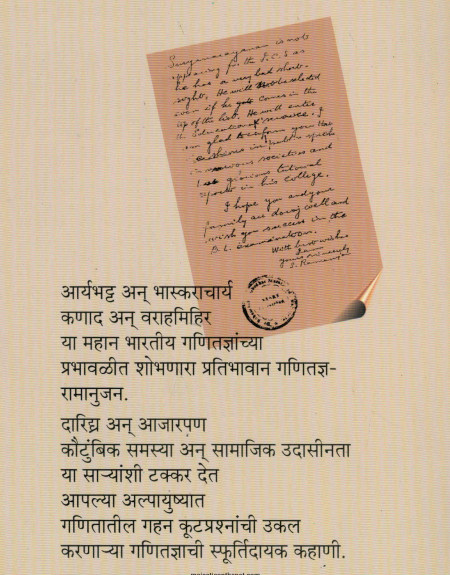 Suryanarayanan is not
appearing for the I.C.S as
he has a very bad short-
sight. He will not be selected
even if he gets comes in the
top of the list. He will enter
the Educational service. I
am glad to inform you that
in public
in various societies and
glorious tutorial
in his college.
I hope you and your
family are doing well and
wish you success in the
B.L. Examination.
With best wishes
yours sincerely
S. Ramanujan
आर्यभट्ट अन् भास्कराचार्य
कणाद अन् वराहमिहिर
या महान भारतीय गणितज्ञांच्या
प्रभावळीत शोभणारा प्रतिभावान गणितज्ञ-
रामानुजन.
दारिद्र्य अन् आजारपण
कौटुंबिक समस्या अन् सामाजिक उदासीनता
या साऱ्यांशी टक्कर देत
आपल्या अल्पायुष्यात
गणितातील गहन कूटप्रश्नांची उकल
करणाऱ्या गणितज्ञाची स्फूर्तिदायक कहाणी.